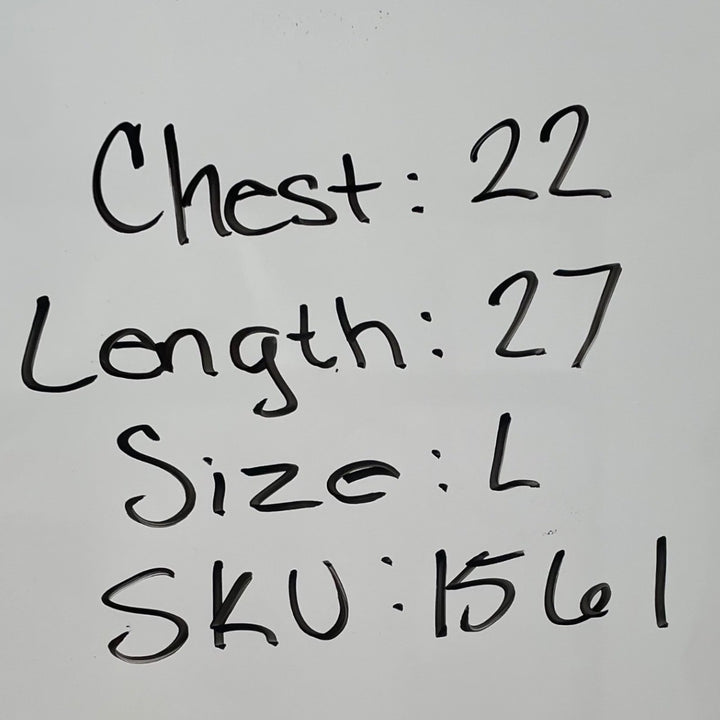 Chest: 22
Length: 27
Size: L
SKU: 1561